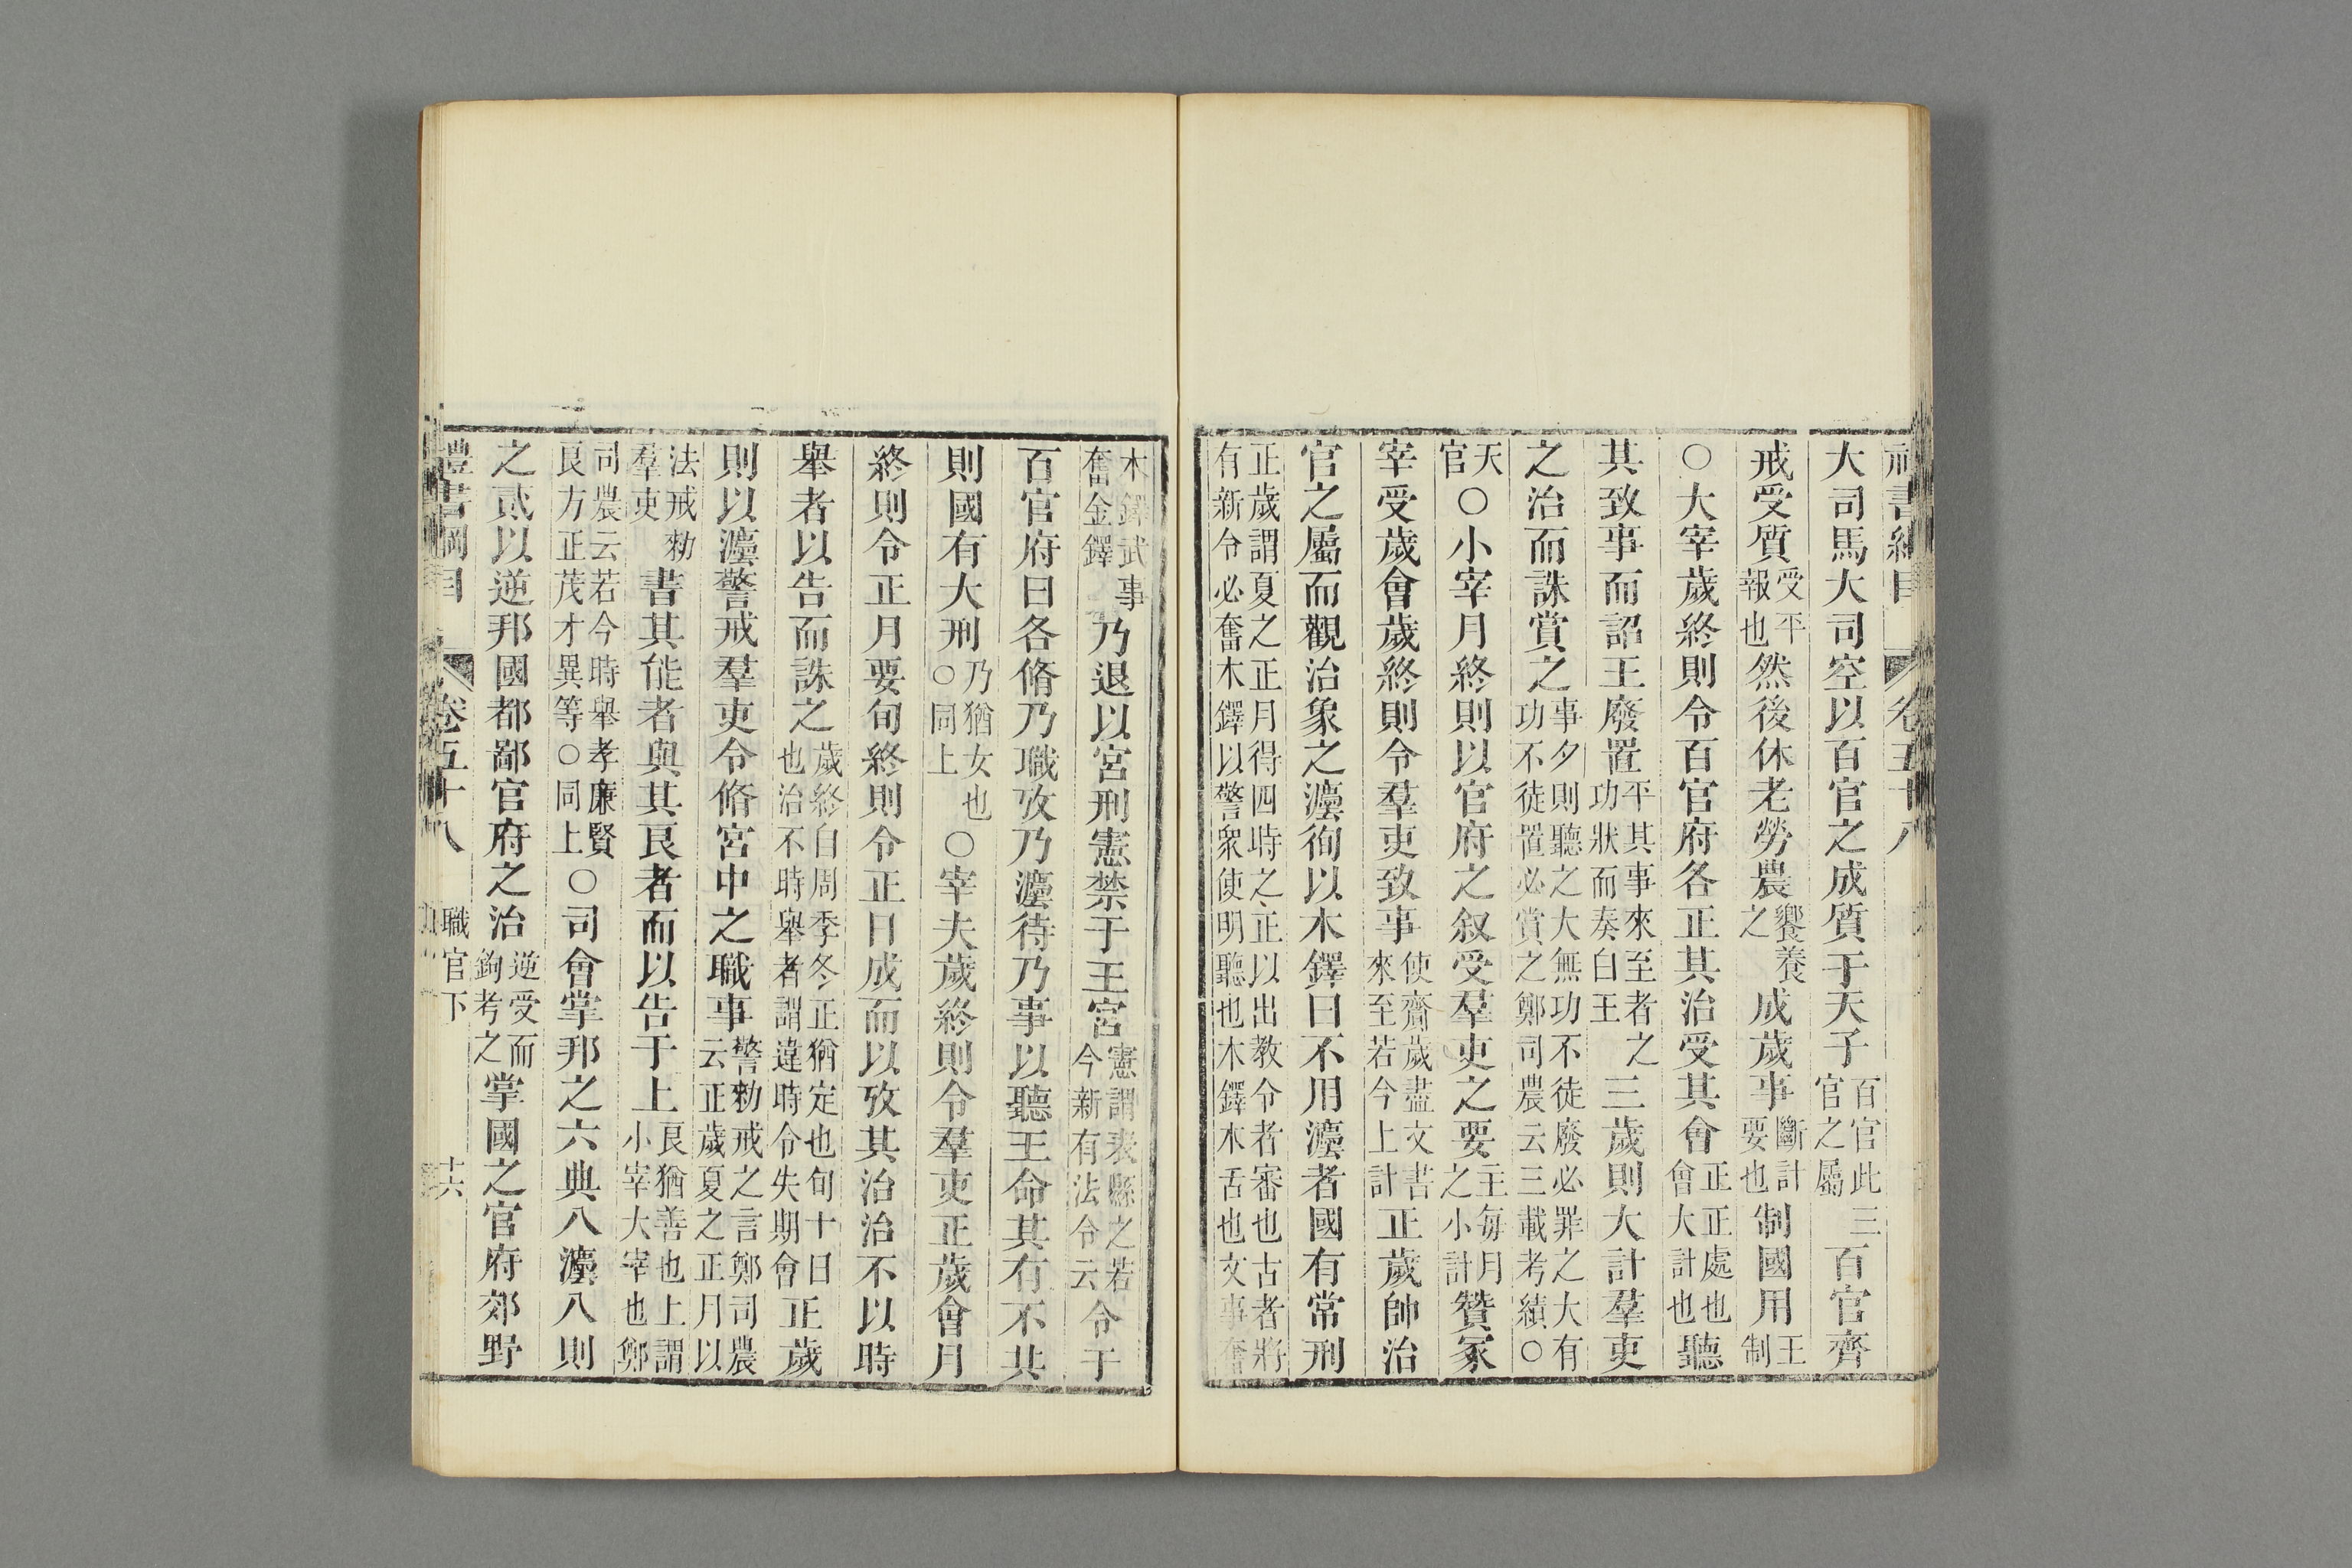 禮書綱目　卷五十八
大司馬大司空以百官之成質于天子百官此三官之屬百官齊
戒受質受平報也然後休老勞農饗養之成歲事斷計要也制國用王制
○大宰歲終則令百官府各正其治受其會正正處也會大計也聽
其致事而詔王廢置平其事來至者之功狀而奏白王三歲則大計羣吏
之治而誅賞之事夕則聽之大無功不徒廢必罪之大有功不徒置必賞之鄭司農云三載考績○
天官○小宰月終則以官府之叙受羣吏之要主每月之小計贊冢
宰受歲會歲終則令羣吏致事使齎歲盡文書來至若今上計正歲帥治
官之屬而觀治象之灋徇以木鐸曰不用灋者國有常刑
正歲謂夏之正月得四時之正以出教令者審也古者將有新令必奮木鐸以警衆使明聽也木鐸木舌也文事奮
木鐸武事奮金鐸乃退以宮刑憲禁于王宮憲謂表縣之若今新有法令云令于
百官府曰各脩乃職攷乃灋待乃事以聽王命其有不共
則國有大刑乃猶女也○同上○宰夫歲終則令羣吏正歲會月
終則令正月要旬終則令正日成而以攷其治治不以時
舉者以告而誅之歲終自周季冬正猶定也旬十日也治不時舉者謂違時令失期會正歲
則以灋警戒羣吏令脩宮中之職事警勑戒之言鄭司農云正歲夏之正月以
法戒勑羣吏書其能者與其良者而以告于上良猶善也上謂小宰大宰也鄭
司農云若今時舉孝廉賢良方正茂才異等○同上○司會掌邦之六典八灋八則
之貳以逆邦國都鄙官府之治逆受而鉤考之掌國之官府郊野
禮書綱目　卷五十八　職官下　十六